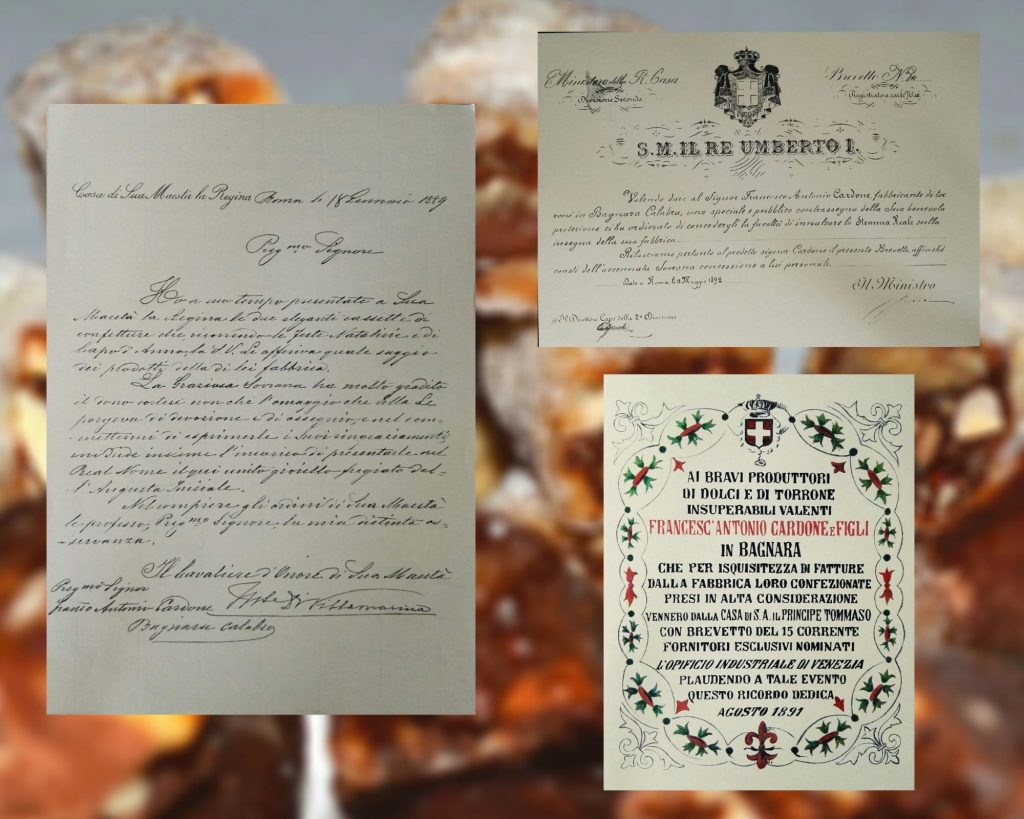 Casa di Sua Maestà la Regina Roma li 18 Gennaio 1889
Preg.mo Signore
Ho a suo tempo presentate a Sua
Maestà la Regina le due eleganti cassette di
confetture che ricorrendo le feste Natalizie e di
Capo d'Anno la S. V. Le offeriva quale saggio
dei prodotti della di lei fabbrica.
La Graziosa Sovrana ha molto gradito
il dono cortese non che l'omaggio che Ella Le
porgeva di devozione e di ossequio, e nel com-
mettermi di esprimerle i Suoi ringraziamenti
mi diede insieme l'incarico di presentarle nel
Real Nome il qui unito gioiello fregiato del-
l'Augusta Iniziale.
Nel compiere gli ordini di Sua Maestà
le professo, Preg.mo Signore, la mia distinta os-
servanza.
Il Cavaliere d'Onore di Sua Maestà
Preg.mo Signor
Antonio Cardone Villamarina
Bagnara Calabra
Ministero della R. Casa
Divisione Seconda
Brevetto N.
Registrato a carte
S. M. IL RE UMBERTO I.
Volendo dare al Signor Francesco Antonio Cardone, fabbricante di tor
roni in Bagnara Calabra, uno speciale e pubblico contrassegno della Sua benevola
protezione ci ha ordinato di concedergli la facoltà di innalzare lo Stemma Reale sulla
insegna della sua fabbrica
Rilasciamo pertanto al predetto signor Cardone il presente Brevetto, affinchè
consti dell'accennata Sovrana concessione a lui personale.
Dato a Roma, li Maggio 1892
Il Ministro
Il Direttore Capo della 2a Divisione
AI BRAVI PRODUTTORI
DI DOLCI E DI TORRONE
INSUPERABILI VALENTI
FRANCESC'ANTONIO CARDONE E FIGLI
IN BAGNARA
CHE PER ISQUISITEZZA DI FATTURE
DALLA FABBRICA LORO CONFEZIONATE
PRESI IN ALTA CONSIDERAZIONE
VENNERO DALLA CASA DI S. A. IL PRINCIPE TOMMASO
CON BREVETTO DEL 15 CORRENTE
FORNITORI ESCLUSIVI NOMINATI
L'OPIFICIO INDUSTRIALE DI VENEZIA
PLAUDENDO A TALE EVENTO
QUESTO RICORDO DEDICA
AGOSTO 1891